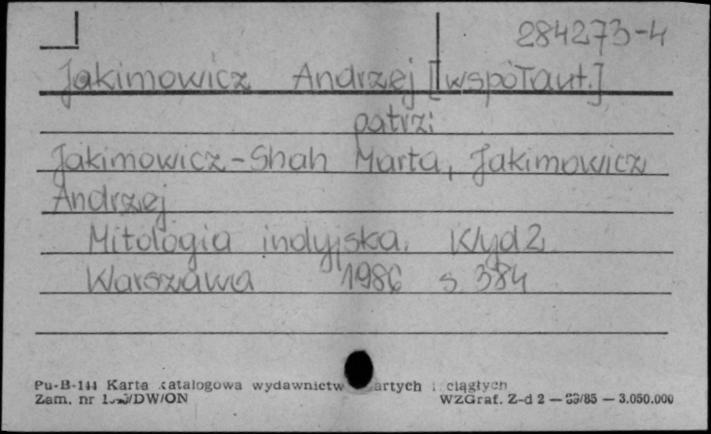 284273-4
Jakimowicz Andrzej [współaut.]
patrz:
Jakimowicz-Shah Marta, Jakimowicz
Andrzej
Mitologia indyjska. Wyd 2
Warszawa 1986 s. 384
Pu-B-144 Karta katalogowa wydawnictw zwartych i ciągłych
Zam. nr /DW/ON WZGraf. Z-d 2 — /85 — 3.050.000